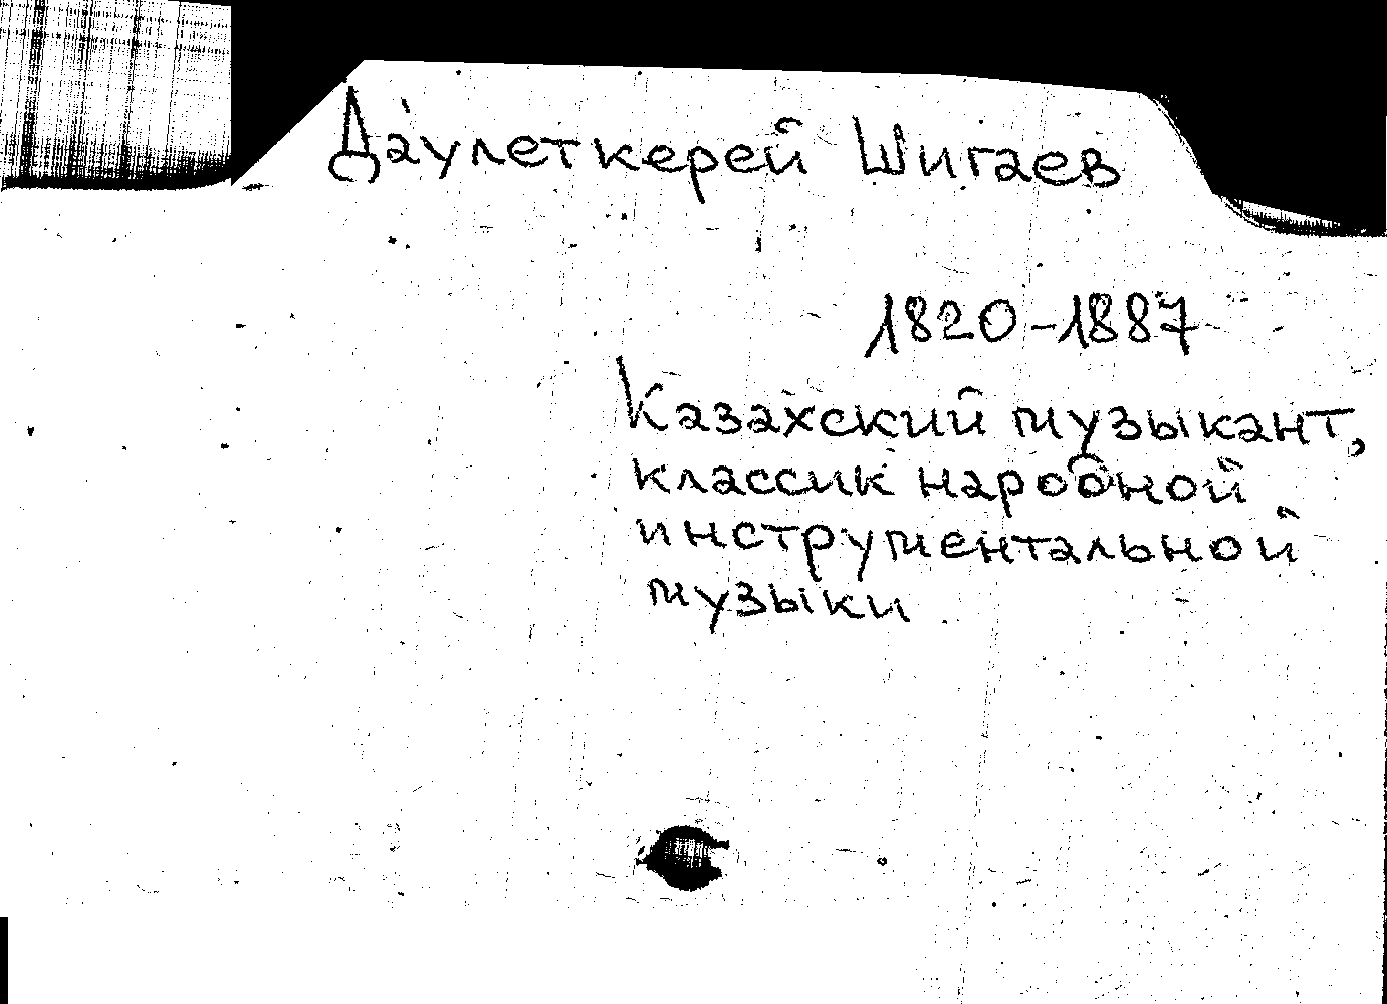 Даулеткерей Шигаев
1820-1887
Казахский музыкант,
классик народной
инструментальной
музыки